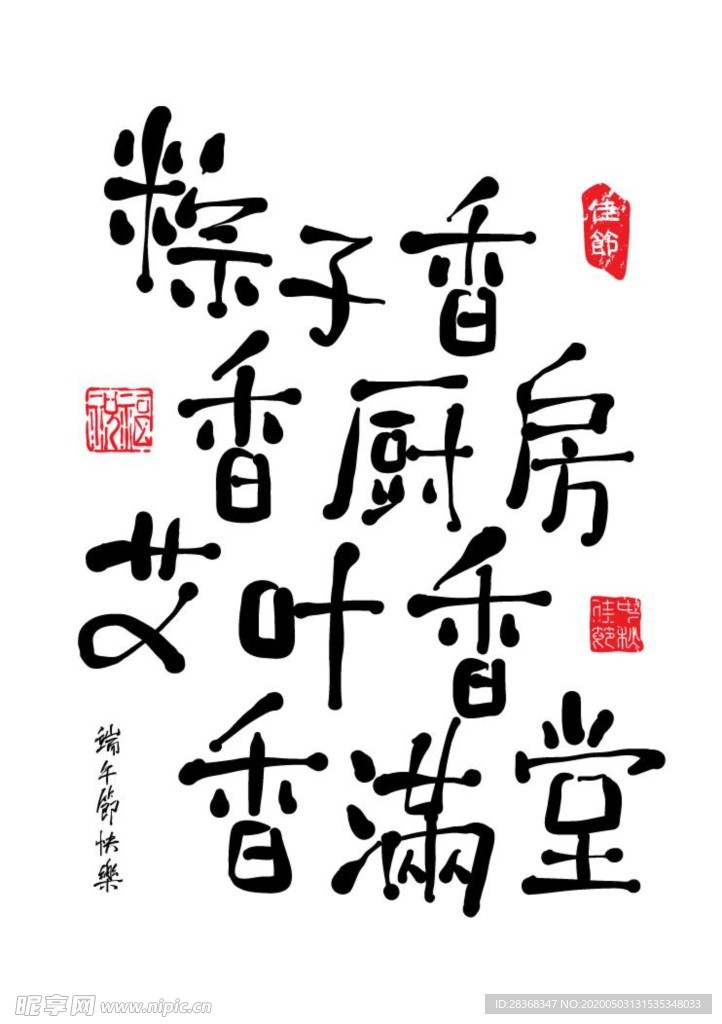 粽子香
佳節
香厨房
艾叶香
中秋佳節
香滿堂
端午節快樂
昵享网 www.nipic.cn
ID:28368347 NO:20200503131535348033